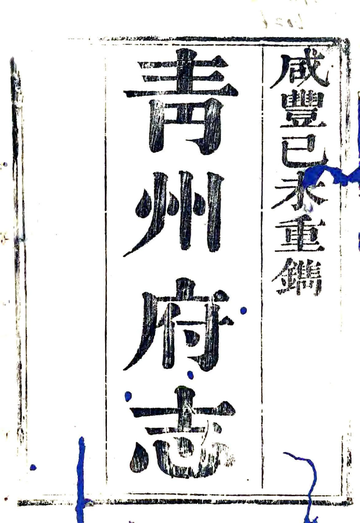 咸豐己未重鐫
靑州府志